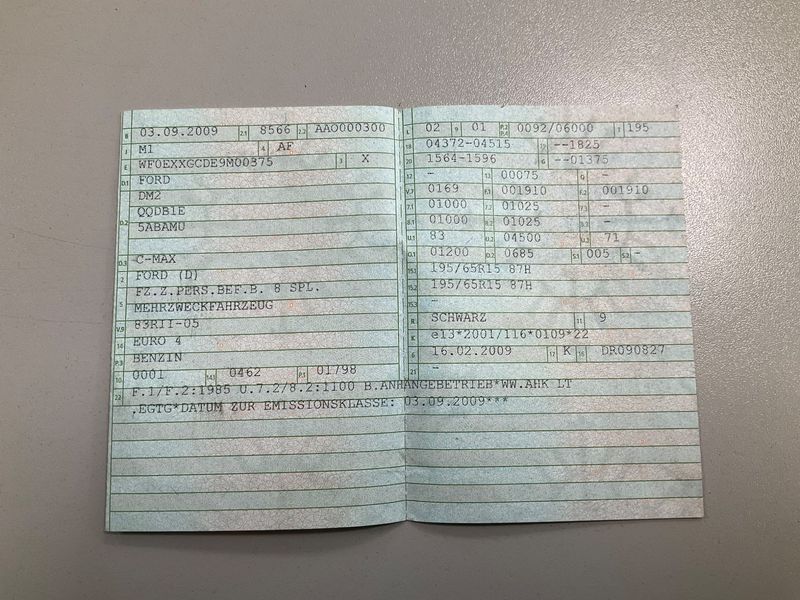 B 03.09.2009 2.1 8566 2.2 AAO000300
J M1 4 AF
E WF0EXXGCDE9M00375 3 X
D.1 FORD
DM2
D.2 QQDB1E
5ABAMU
D.3 C-MAX
2 FORD (D)
FZ.Z.PERS.BEF.B. 8 SPL.
5 MEHRZWECKFAHRZEUG
V.9 83RII-05
14 EURO 4
P.3 BENZIN
10 0001 14.1 0462 P.1 01798
22 F.1/F.2:1985 U.7.2/8.2:1100 B.ANHÄNGEBETRIEB*WW.AHK LT
.EGTG*DATUM ZUR EMISSIONSKLASSE: 03.09.2009***
L 02 9 01 P.2 P.4 0092/06000 T 195
18 04372-04515 19 --1825
20 1564-1596 G --01375
12 - 13 00075 Q -
V.7 0169 F.1 001910 F.2 001910
7.1 01000 7.2 01025 7.3 -
8.1 01000 8.2 01025 8.3 -
U.1 83 U.2 04500 U.3 71
O.1 01200 O.2 0685 S.1 005 S.2 -
15.1 195/65R15 87H
15.2 195/65R15 87H
15.3 -
R SCHWARZ 11 9
K e13*2001/116*0109*22
6 16.02.2009 17 K 16 DR090827
21 -